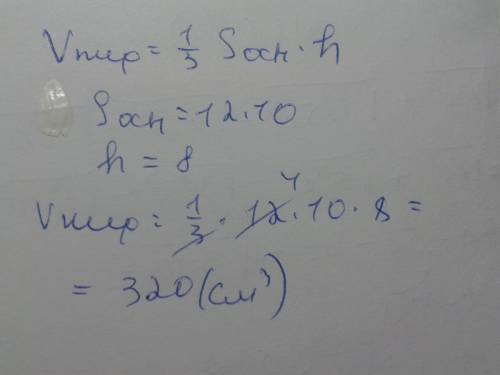 Vпир = 1/3 Sосн · h
Sосн = 12·10
h = 8
Vпир = 1/3 · 12 4 · 10 · 8 =
= 320 (см³)